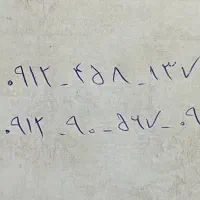 ۰۹۱۲-۴۵۸-۱۳۷
۰۹۱۲-۹۰-۵۶۷-۰۹